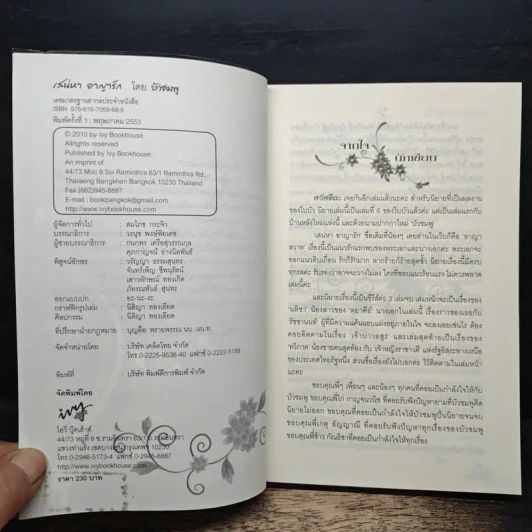 เสน่หา อาญารัก โดย บัวชมพู
เลขมาตรฐานสากลประจำหนังสือ
ISBN 978-616-7059-68-6
พิมพ์ครั้งที่ 1 : พฤษภาคม 2553
© 2010 by Ivy Bookhouse
Allrights reserved
Published by Ivy Bookhouse,
An imprint of
44/73 Moo 8 Soi Raminthra 63/1 Raminthra Rd.,
Tharaeng Bangkhen Bangkok 10230 Thailand
Fax (662)945-8887
E-mail : bookbangkok@gmail.com
http://www.ivybookhouse.com
ผู้จัดการทั่วไป สมโภช กระจิว
บรรณาธิการ วรนุช พงษ์พิยเดช
ผู้ช่วยบรรณาธิการ กนกพร เตรือสุวรรณกุล
ศุภกาญจน์ อ่างนิลพันธ์
พิสูจน์อักษร วรัญญา ธรรมสุนทร
จันทร์เพ็ญ ชีพนุรัตน์
เสาวลักษณ์ ทองเกิด
ภัทรณพันธ์ สุนทร
ออกแบบปก
กราฟฟิกรูปเล่ม นิติญา ทองเอียด
ศิลปกรรม นิติญา ทองเอียด
ที่ปรึกษาฝ่ายกฎหมาย บุญลือ พรายพรรณ นบ.,นบ.ท.
จัดจำหน่ายโดย บริษัท เคล็ดไทย จำกัด
โทร.0-2225-9536-40 แฟกซ์ 0-2222-5188
พิมพ์ที่ บริษัท พิมพ์ดีการพิมพ์ จำกัด
จัดพิมพ์โดย
ivy
ไอวี่ บุ๊คเฮ้าส์
44/73 หมู่ที่ 8 ซ.รามอินทรา 63/1 ถ.รามอินทรา
แขวงท่าแร้ง เขตบางเขน กรุงเทพฯ 10230
โทร.0-2946-5173-4 แฟกซ์ 0-2945-8887
http://www.ivybookhouse.com
ราคา 230 บาท
จากใจ
นักเขียน
สวัสดีค่ะ เจอกันอีกเล่มแล้วนะคะ สำหรับนิยายที่เป็นผลงาน
ของใบบัว นิยายเล่มนี้เป็นเล่มที่ 6 ของใบบัวแล้วค่ะ แต่เป็นเล่มแรกกับ
บ้านหลังใหม่แห่งนี้ และด้วยนามปากกาใหม่ 'บัวชมพู'
'เสน่หา อาญารัก' ชื่อเดิมที่น้องๆ เคยอ่านในเว็บก็คือ 'อาญา
สวาท' เรื่องนี้เป็นแนวรักแรกพบของพระเอกและนางเอกค่ะ พระเอกจะ
ออกแนวดิบเถื่อน รักก็รักมาก หากร้ายก็ร้ายสุดขั้ว นิยายเรื่องนี้มีครบ
ทุกรสค่ะ รับรองว่าอาจจะวางไม่ลง ใครที่ชอบแนวร้อนแรง ไม่ควรพลาด
เล่มนี้ค่ะ
และนิยายเรื่องนี้เป็นซีรี่ส์ค่ะ 3 เล่มจบ เล่มหน้าจะเป็นเรื่องของ
ของประเทศไทยรัฐหนึ่ง ส่วนชื่อเรื่องยังไม่บอกค่ะ ไว้ติดตามในเล่มหน้า
นะคะ
ขอบคุณพี่ๆ เพื่อนๆ และน้องๆ ทุกคนที่คอยเป็นกำลังใจให้กับ
บัวชมพู ขอบคุณพี่ไก่ กาญจนวนิช ที่คอยรับฟังปัญหายามที่บัวชมพูคิด
นิยายไม่ออก ขอบคุณพี่แก้วที่คอยเป็นกำลังใจให้บัวชมพูปั่นนิยายจนจบ
ขอบคุณพี่เกตุ อัญญาณี ที่คอยรับฟังปัญหาทุกเรื่องของบัวชมพู
ขอบคุณพี่ช้าง กัณธิชาที่คอยเป็นกำลังใจให้ทุกเรื่อง